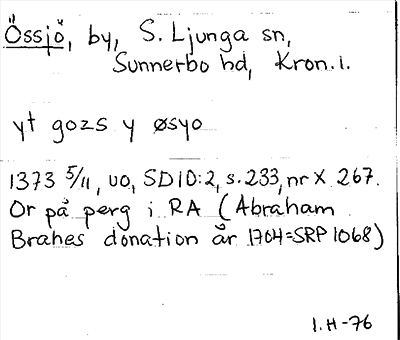 Össjö, by, S. Ljunga sn,
Sunnerbo hd, Kron. l.
yt gozs y øsyo
1373 5/11, uo, SD 10:2, s. 233, nr X 267.
Or på perg i RA (Abraham
Brahes donation år 1704=SRP 1068)
I. H-76